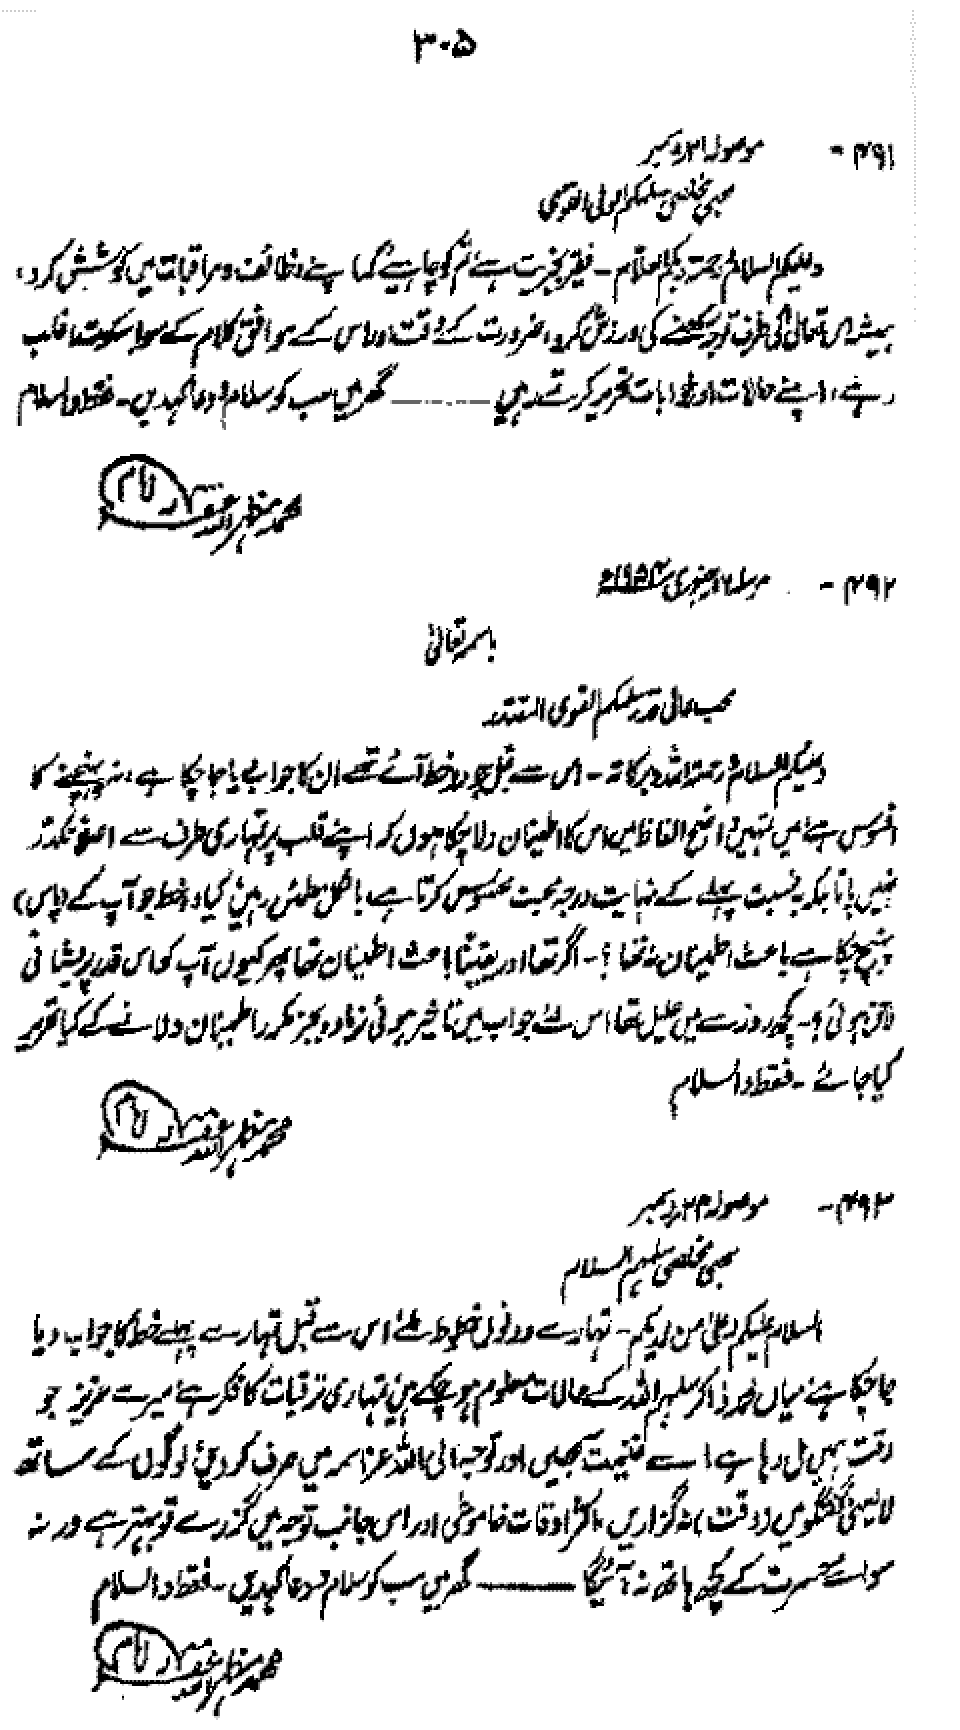 ۳۰۵
۴۹۱ - موصولہ ۳۱ دسمبر
محبی مخلصی سلمکم المولی القوی
وعلیکم السلام ثم رحمۃ ربکم العلام - فقیر بخیریت ہے تم کو چاہیے کہ اپنے وظائف و مراقبات میں کوشش کرو،
ہمیشہ اس تعالیٰ کی طرف توجہ رکھنے کی ورزش کرو، ضرورت کے وقت اور اس کے موافق کلام کے سوا سکوت مع قلب
رہے، اپنے حالات اور جوابات تحریر کرتے رہیں ——— گھر میں سب کو سلام و دعا کہدیں - فقط والسلام
محمد مظہر اللہ غفرلہ امام
۴۹۲ - مرسلہ ۱۶ جنوری ۱۹۵۴ء
باسمہ تعالیٰ
محب عالی قدر سلمکم القوی المقتدر
وعلیکم السلام ثم رحمۃ اللہ وبرکاتہ - اس سے قبل جو دو خط آئے تھے ان کا جواب دیا جا چکا ہے، نہ پہنچنے کا
افسوس ہے، میں تمہیں واضح الفاظ میں اس کا اطمینان دلا چکا ہوں کہ اپنے قلب پر تمہاری طرف سے اصلاً تکدر
نہیں پاتا بلکہ بہ نسبت پہلے کے نہایت درجہ محبت محسوس کرتا ہے، بالکل مطمئن رہیں، کیا وہ خط جو آپ کے (پاس)
پہنچ چکا ہے باعث اطمینان نہ تھا؟ - اگر تھا اور یقیناً باعث اطمینان تھا پھر کیوں آپ کو اس قدر پریشانی
لاحق ہوئی؟ - کچھ روز سے میں علیل تھا اس لئے جواب میں تاخیر ہوئی زیادہ بجز مکرر اطمینان دلانے کے کیا تحریر
کیا جائے - فقط والسلام
محمد مظہر اللہ غفرلہ امام
۴۹۳ - موصولہ ۲۴ دسمبر
محبی مخلصی سلمہم السلام
السلام علیکم وعلیٰ من لدیکم - تمہارے دونوں خطوط ملے، اس سے قبل تمہارے پہلے خط کا جواب دیا
جا چکا ہے، میاں محمد ذاکر سلمہم اللہ کے حالات معلوم ہو چکے ہیں، تمہاری ترقیات کا فکر ہے، میرے عزیز جو
وقت تمہیں مل رہا ہے اسے غنیمت سمجھیں اور توجہ الی اللہ عز اسمہ میں صرف کر دیں، لوگوں کے ساتھ
لایعنی گفتگو میں (وقت) نہ گزاریں، اکثر اوقات خاموشی اور اس جانب توجہ میں گزرے تو بہتر ہے ورنہ
سوائے حسرت کے کچھ ہاتھ نہ آئیگا ——— گھر میں سب کو سلام و دعا کہدیں - فقط والسلام
محمد مظہر اللہ غفرلہ امام